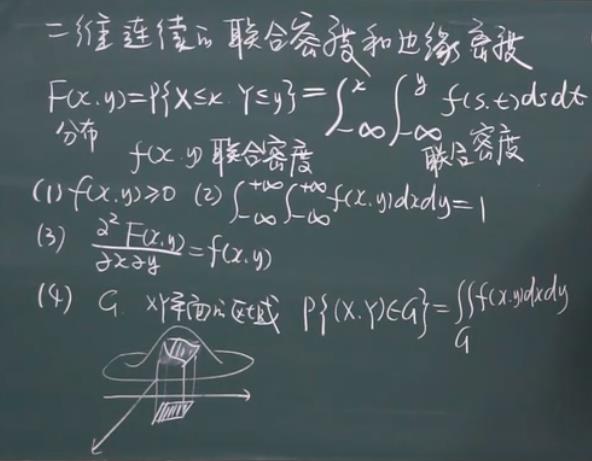 二维连续的联合密度和边缘密度
F(x.y)=P{X≤x. Y≤y}=∫_{-∞}^{x}∫_{-∞}^{y} f(s.t)dsdt
分布 联合密度
f(x.y)联合密度
(1) f(x.y)≥0 (2) ∫_{-∞}^{+∞}∫_{-∞}^{+∞} f(x.y)dxdy=1
(3) ∂²F(x.y)/∂x∂y = f(x.y)
(4) G. XY平面的区域 P{(X.Y)∈G}=∬_G f(x.y)dxdy